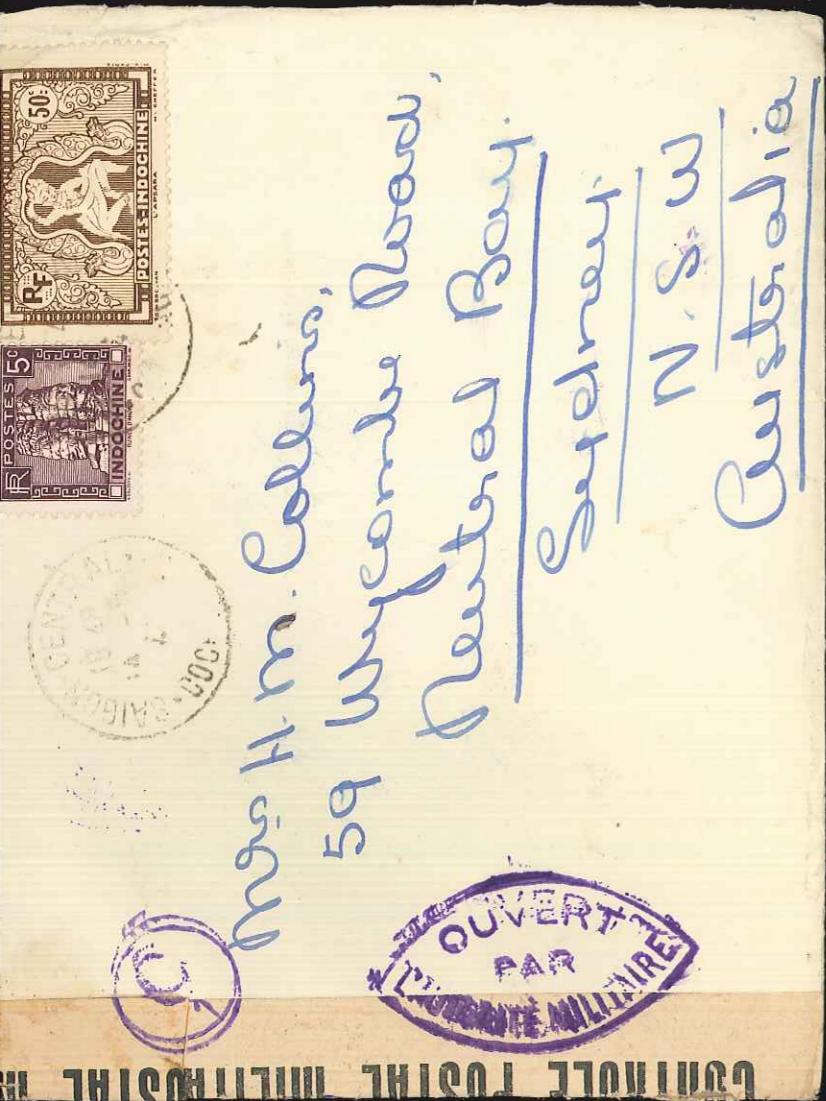 50c
RF
POSTES-INDOCHINE
L'APSARA
POSTES 5c
RF
INDOCHINE
SAIGON-CENTRAL
COCH
Mrs H. M. Collins,
59 Wycombe Road,
Neutral Bay.
Sydney.
N. S. W
Australia
C
OUVERT
PAR
L'AUTORITÉ MILITAIRE
CONTROLE POSTAL MILITAI